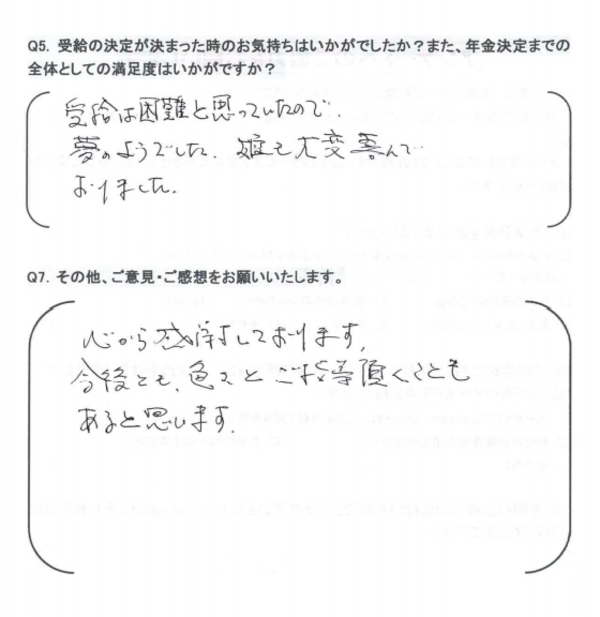 Q5. 受給の決定が決まった時のお気持ちはいかがでしたか？また、年金決定までの
全体としての満足度はいかがですか？
受給は困難と思っていたので
夢のようでした. 娘も大変喜んで
おりました.
Q7. その他、ご意見・ご感想をお願いいたします。
心から感謝しております.
今後とも、色々とご指導頂くことも
あると思います.